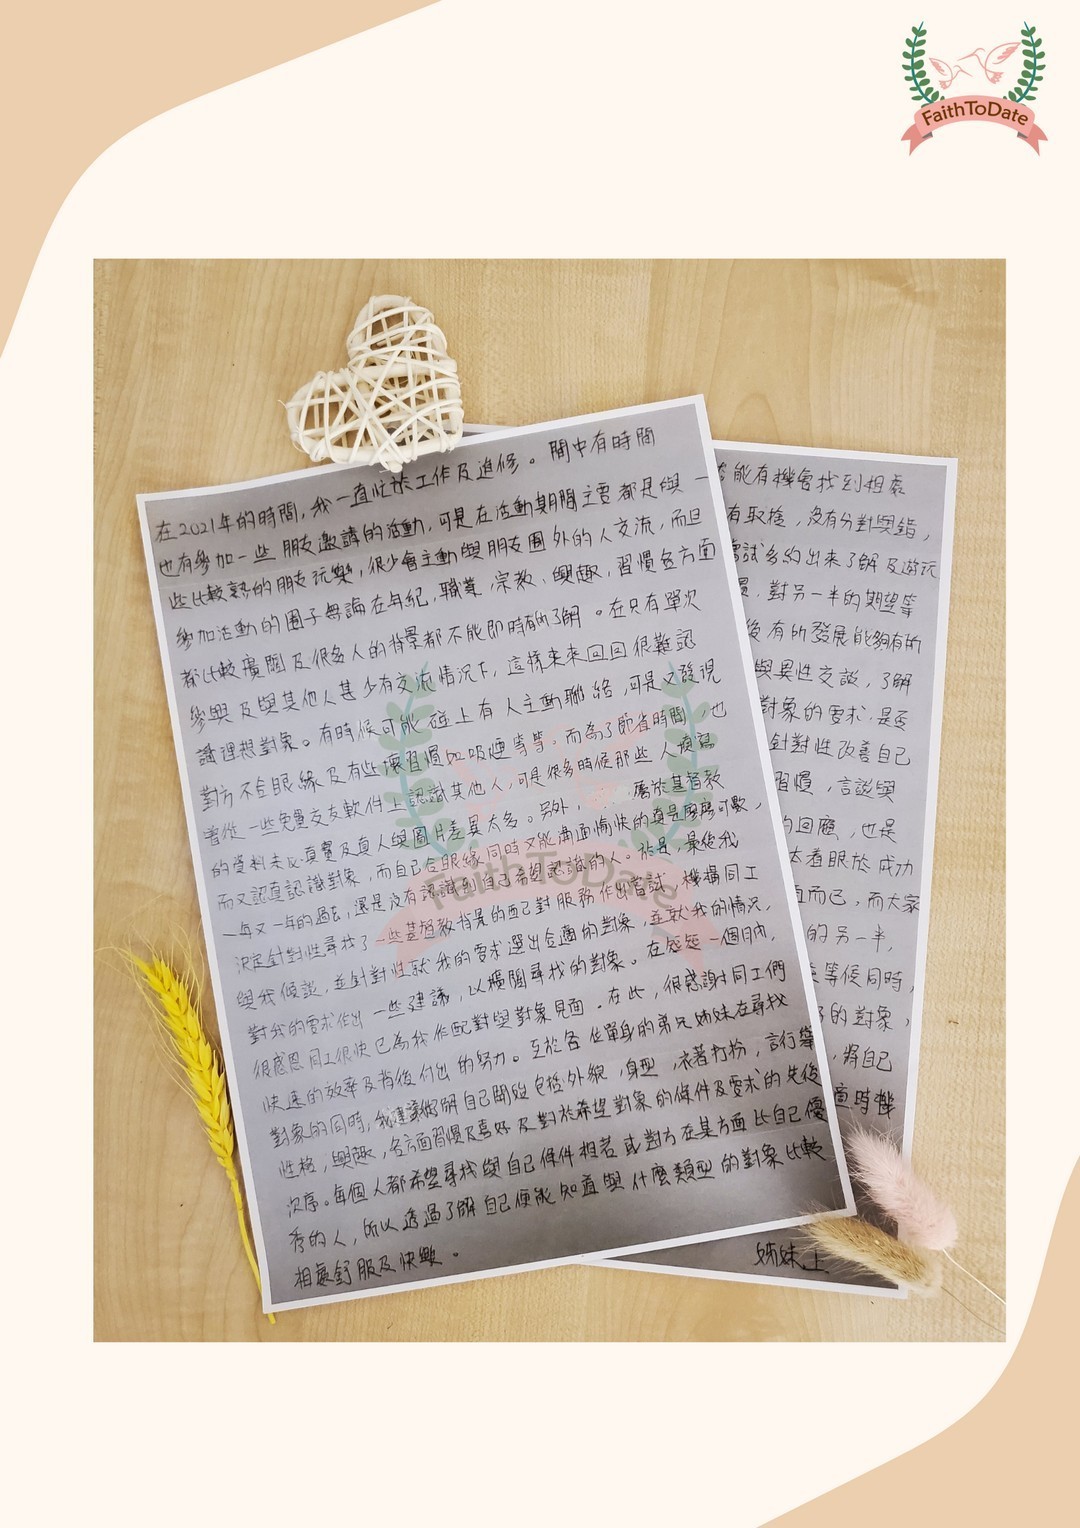 FaithToDate
在2021年的時間,我一直忙於工作及進修。間中有時間
也有參加一些朋友邀請的活動,可是在活動期間主要都是與一
些比較熟的朋友玩樂,很少會主動與朋友圈外的人交流,而且
參加活動的圈子無論在年紀,職業,宗教、興趣,習慣各方面
都比較廣闊及很多人的背景都不能即時有所了解。在只有單次
參與及與其他人甚少有交流情況下,這樣來來回回很難認
識理想對象。有時候可能碰上有人主動聯絡,可是又發現
對方不合眼緣及有些壞習慣如吸煙等等。而為了節省時間,也
嘗從一些免費交友軟件上認識其他人,可是很多時候那些人填寫
的資料未必真實及真人與圖片差異太多。另外,屬於基督教
而又認真認識對象,而自己合眼緣同時又能溝通愉快的真是寥寥可數,
一年又一年的過去,還是沒有認識到自己希望認識的人。於是,最後我
決定針對性尋找了一些基督教背景的配對服務作出嘗試,機構同工
與我傾談,並針對性就我的要求選出合適的對象,並就我的情況,
對我的要求作出一些建議,以擴闊尋找的對象。在短短一個月內,
很感恩同工很快已為我作配對與對象見面。在此,很感謝同工們
快速的效率及背後付出的努力。至於各位單身的弟兄姊妹在尋找
對象的同時,我建議從了解自己開始包括外貌,身型,衣著打扮,言行舉
性格,興趣,各方面習慣及喜好及對於希望對象的條件及要求的先後
次序。每個人都希望尋找與自己條件相若或對方在某方面比自己優
秀的人,所以透過了解自己便能知道與什麼類型的對象比較
相處舒服及快樂。
能有機會找到相處
有取捨,沒有分對與錯,
嘗試多約出來了解及遊玩
對另一半的期望等
後有所發展能夠有所
與異性交談,了解
對象的要求,是否
針對性改善自己
習慣,言談與
的回應,也是
太着眼於成功
而已,而大家
的另一半,
等候同時,
的對象,
,將自己
時機
姊妹上
FaithToDate